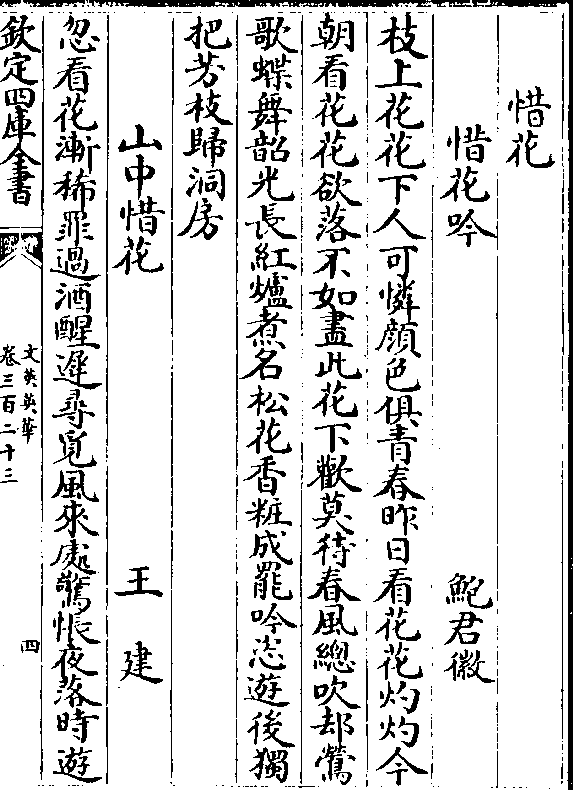 惜花
惜花吟 鮑君徽
枝上花花下人可憐顔色俱青春昨日看花花灼灼今
朝看花花欲落不如盡此花下歡莫待春風總吹却鶯
歌蝶舞韶光長紅爐煮名松花香粧成罷吟恣遊後獨
把芳枝歸洞房
山中惜花 王建
忽看花漸稀罪過酒醒遲尋覓風來處驚悵夜落時遊
欽定四庫全書
文英英華
卷三百二十三
四